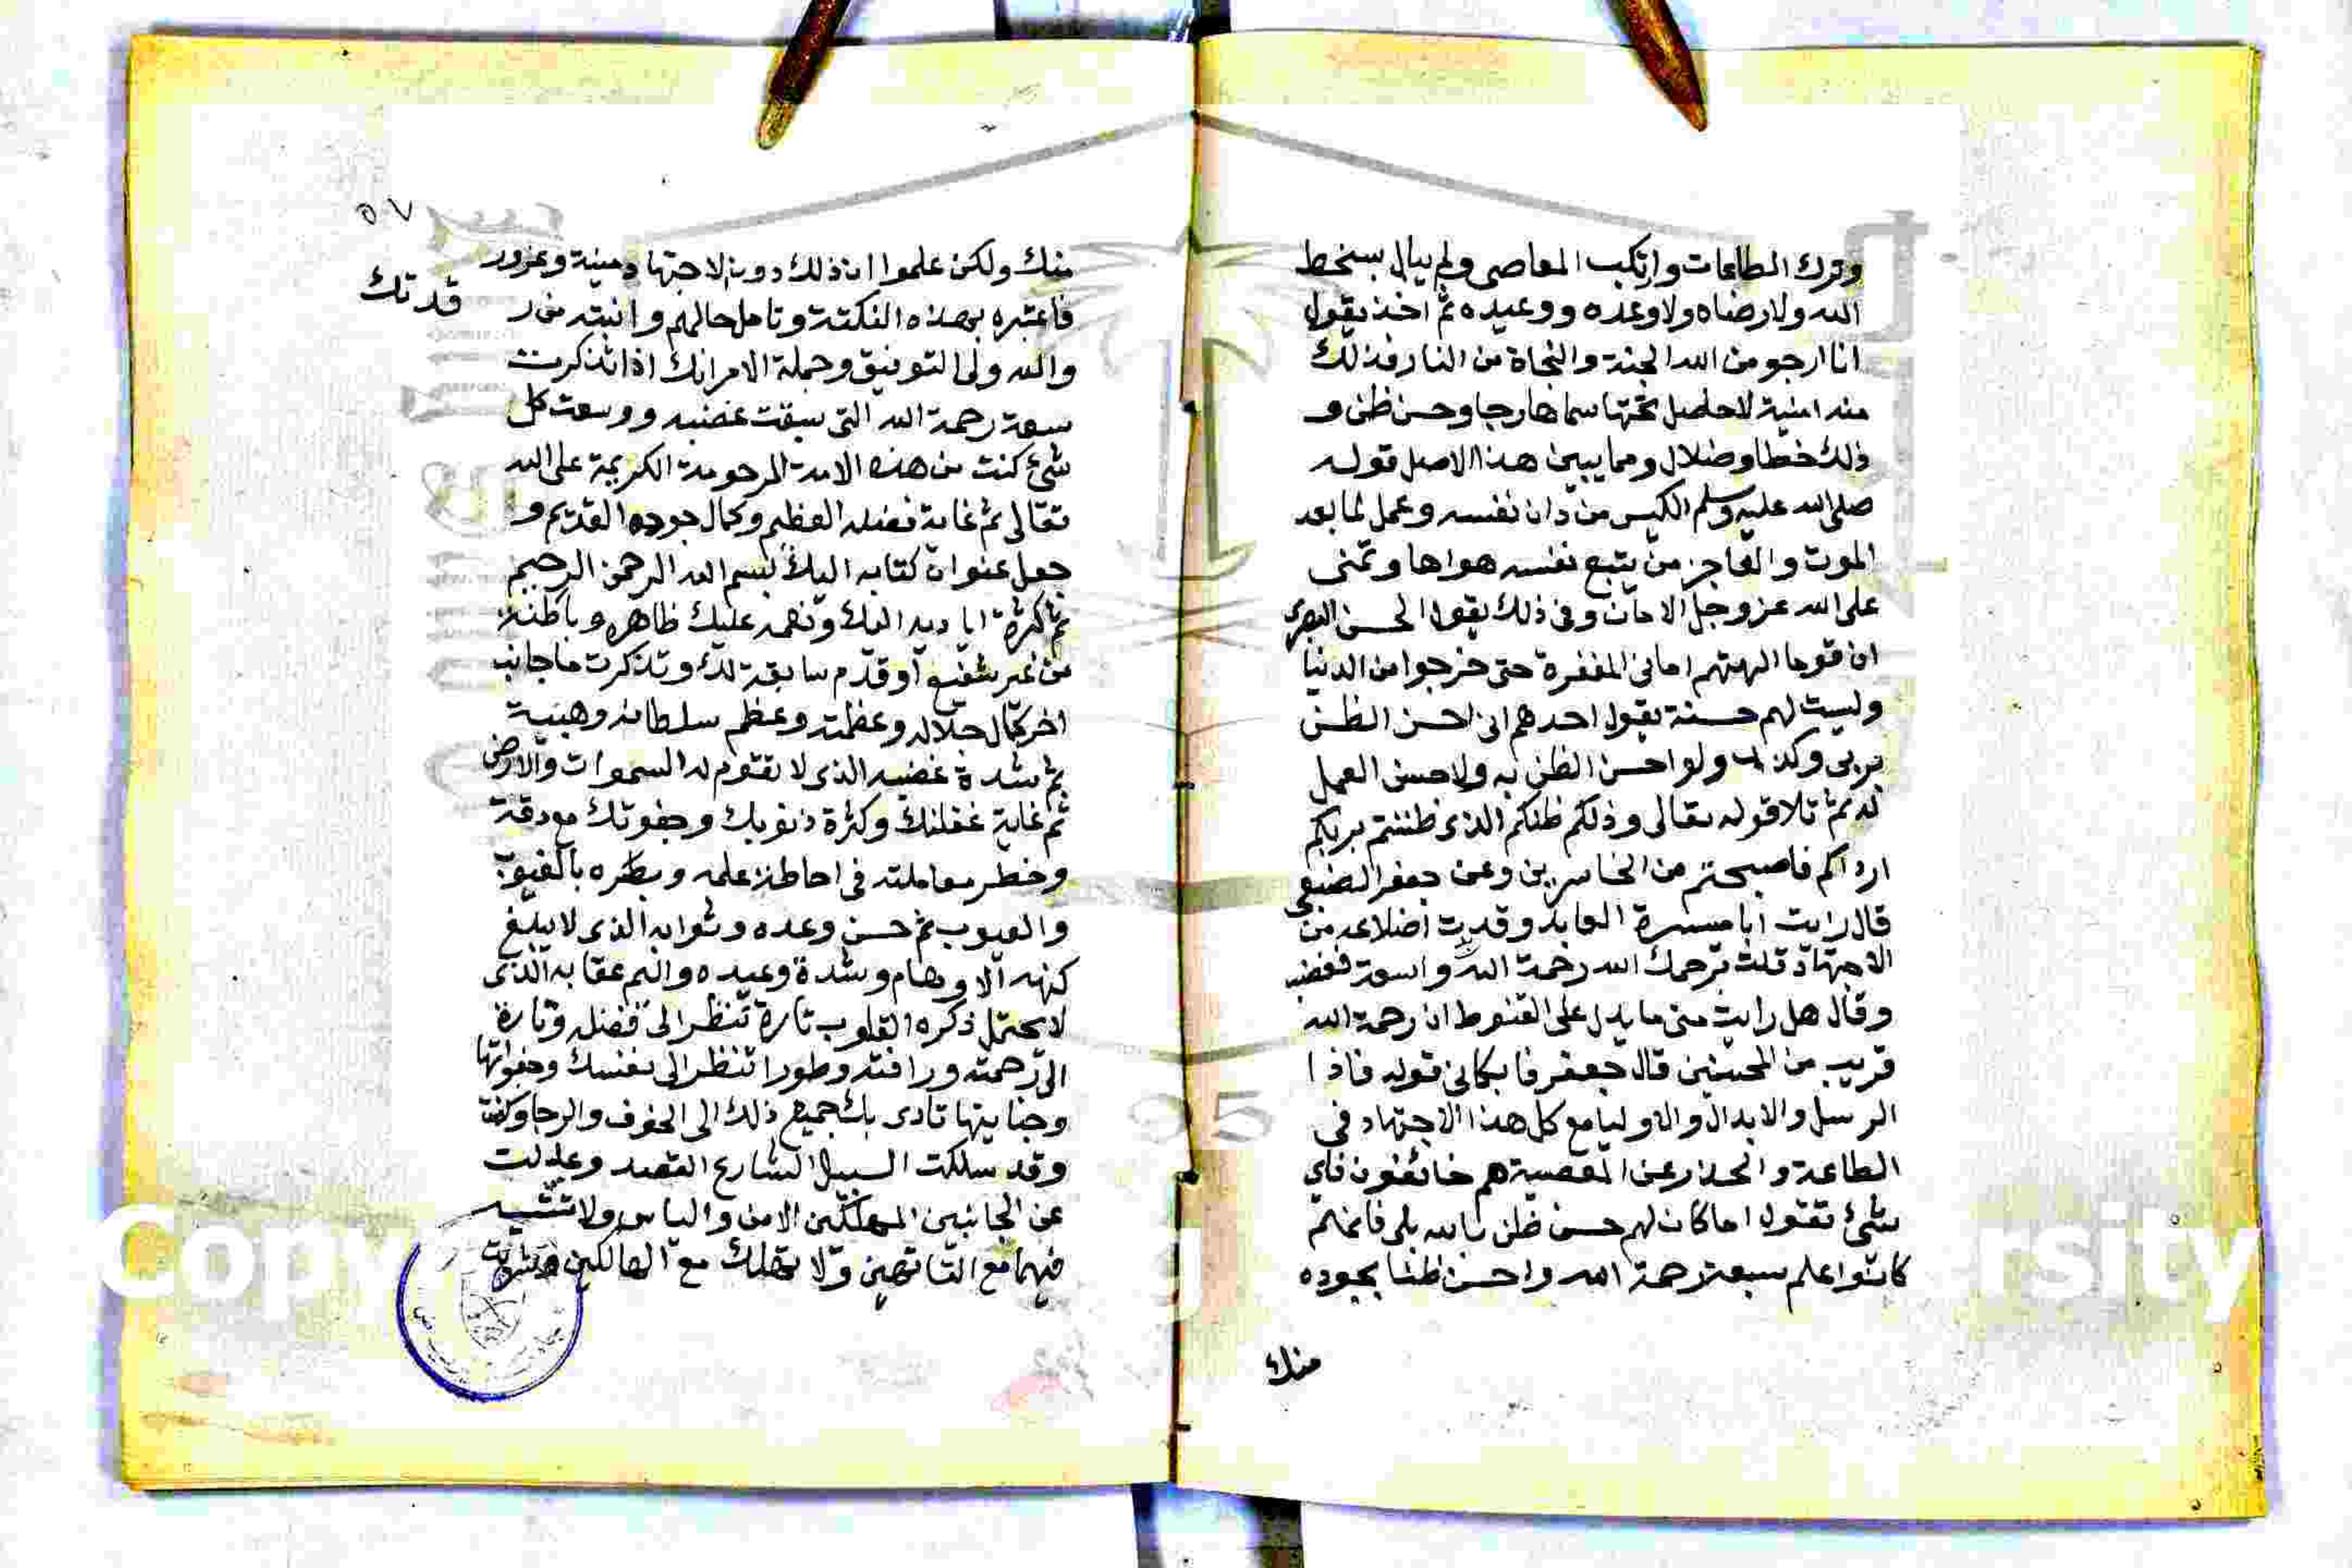 وترك الطاعات وارتكب المعاصى ولم يبال بسخط
الله ولا رضاه ولا وعده ووعيده ثم اخذ يقول
انا ارجو من الله الجنة والنجاة من النار فذلك
منه امنية لا حاصل تحتها سماها رجا وحسن ظن و
ذلك خطا وضلال ومما يبين هذا الاصل قوله
صلى الله عليه وسلم الكيس من دان نفسه وعمل لما بعد
الموت والعاجز من يتبع نفسه هواها وتمنى
على الله عز وجل الامان وفى ذلك يقول الحسن البصرى
ان قوما الهتهم امانى المغفرة حتى خرجوا من الدنيا
وليست لهم حسنة يقول احدهم انى احسن الظن
بربى وكذب ولو احسن الظن به لاحسن العمل
له ثم تلا قوله تعالى وذلكم ظنكم الذى ظننتم بربكم
ارداكم فاصبحتم من الخاسرين وعن جعفر الضبعى
قال رايت ابا ميسرة العابد وقد بدت اضلاعه من
الاجتهاد قلت يرحمك الله رحمة الله واسعة فغضب
وقال هل رايت منى ما يدل على القنوط ان رحمة الله
قريب من المحسنين قال جعفر فابكانى قوله فاذا
الرسل والابدال والاوليا مع كل هذا الاجتهاد فى
الطاعة والحذر عن المعصية هم خائفون فاى
شئ تقول اما كان لهم حسن ظن بالله بلى فانهم
كانوا اعلم بسعة رحمة الله واحسن ظنا بجوده
منك
٥٧
منك ولكن علموا ان ذلك دون الاجتهاد منية وغرور
فاعتبره بهذه النكتة وتامل حالهم وانتبه من ر
قدتك
والله ولى التوفيق وجملة الامر انك اذا تذكرت
سعة رحمة الله التى سبقت غضبه ووسعت كل
شئ كنت من هذه الامة المرحومة الكريمة على الله
تعالى ثم غاية فضله العظيم وكمال جوده القديم و
جعل عنوان كتابه اليك بسم الله الرحمن الرحيم
ثم كثرة اياديه اليك ونعمه عليك ظاهره وباطنة
من غير شفيع او قدم سابقة لك وتذكرت ما جانب
اخر كمال جلاله وعظمته وعظم سلطانه وهيبة
ثم شدة غضبه الذى لا تقوم له السموات والارض
ثم غاية غفلتك وكثرة ذنوبك وجفوتك مع دقة
وخطر معاملته فى احاطة علمه وبصره بالغيوب
والعيوب ثم حسن وعده وثوابه الذى لا يبلغ
كنهه الاوهام وشدة وعيده واليم عقابه الذى
لا يحتمل ذكره القلوب تارة تنظر الى فضله وتارة
الى رحمته ورافته وطورا تنظر الى نفسك وجفواتها
وجنايتها تادى بك جميع ذلك الى الخوف والرجا وكنت
وقد سلكت السبيل الشارع القصد وعدلت
عن الجانبين المهلكين الامن والياس ولا تتيه
فيهما مع التائهين ولا تهلك مع الهالكين وشربت